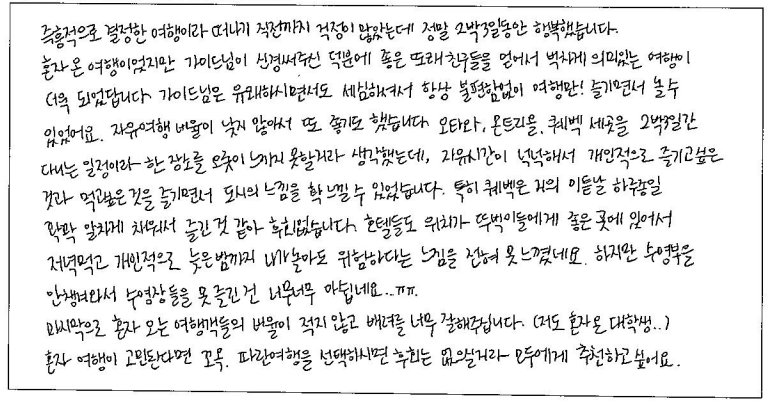 즉흥적으로 결정한 여행이라 떠나기 직전까지 걱정이 많았는데 정말 2박3일동안 행복했습니다.
혼자 온 여행이었지만 가이드님이 신경써주신 덕분에 좋은 또래친구들을 얻어서 벅차게 의미있는 여행이
더욱 되었답니다 가이드님은 유쾌하시면서도 세심하셔서 항상 불편함없이 여행만! 즐기면서 놀 수
있었어요. 자유여행 비율이 낮지 않아서 또 좋기도 했습니다 오타와, 몬트리올, 퀘벡 세곳을 2박3일간
다니는 일정이라 한 장소를 오롯이 느끼지 못할거라 생각했는데, 자유시간이 넉넉해서 개인적으로 즐기고싶은
것과 먹고싶은 것을 즐기면서 도시의 느낌을 확 느낄 수 있었습니다. 특히 퀘벡은 거의 이튿날 하루종일
꽉꽉 알차게 채워서 즐긴 것 같아 후회없습니다. 호텔들도 위치가 뚜벅이들에게 좋은 곳에 있어서
저녁먹고 개인적으로 늦은 밤까지 나가놀아도 위험하다는 느낌을 전혀 못 느꼈네요. 하지만 수영복을
안챙겨와서 수영장들을 못 즐긴 건 너무너무 아쉽네요..ㅠㅠ.
마지막으로 혼자 오는 여행객들의 비율이 적지 않고 배려를 너무 잘해주십니다. (저도 혼자온 대학생..)
혼자 여행이 고민된다면 꼬옥. 파란여행을 선택하시면 후회는 없으실거라 모두에게 추천하고 싶어요.